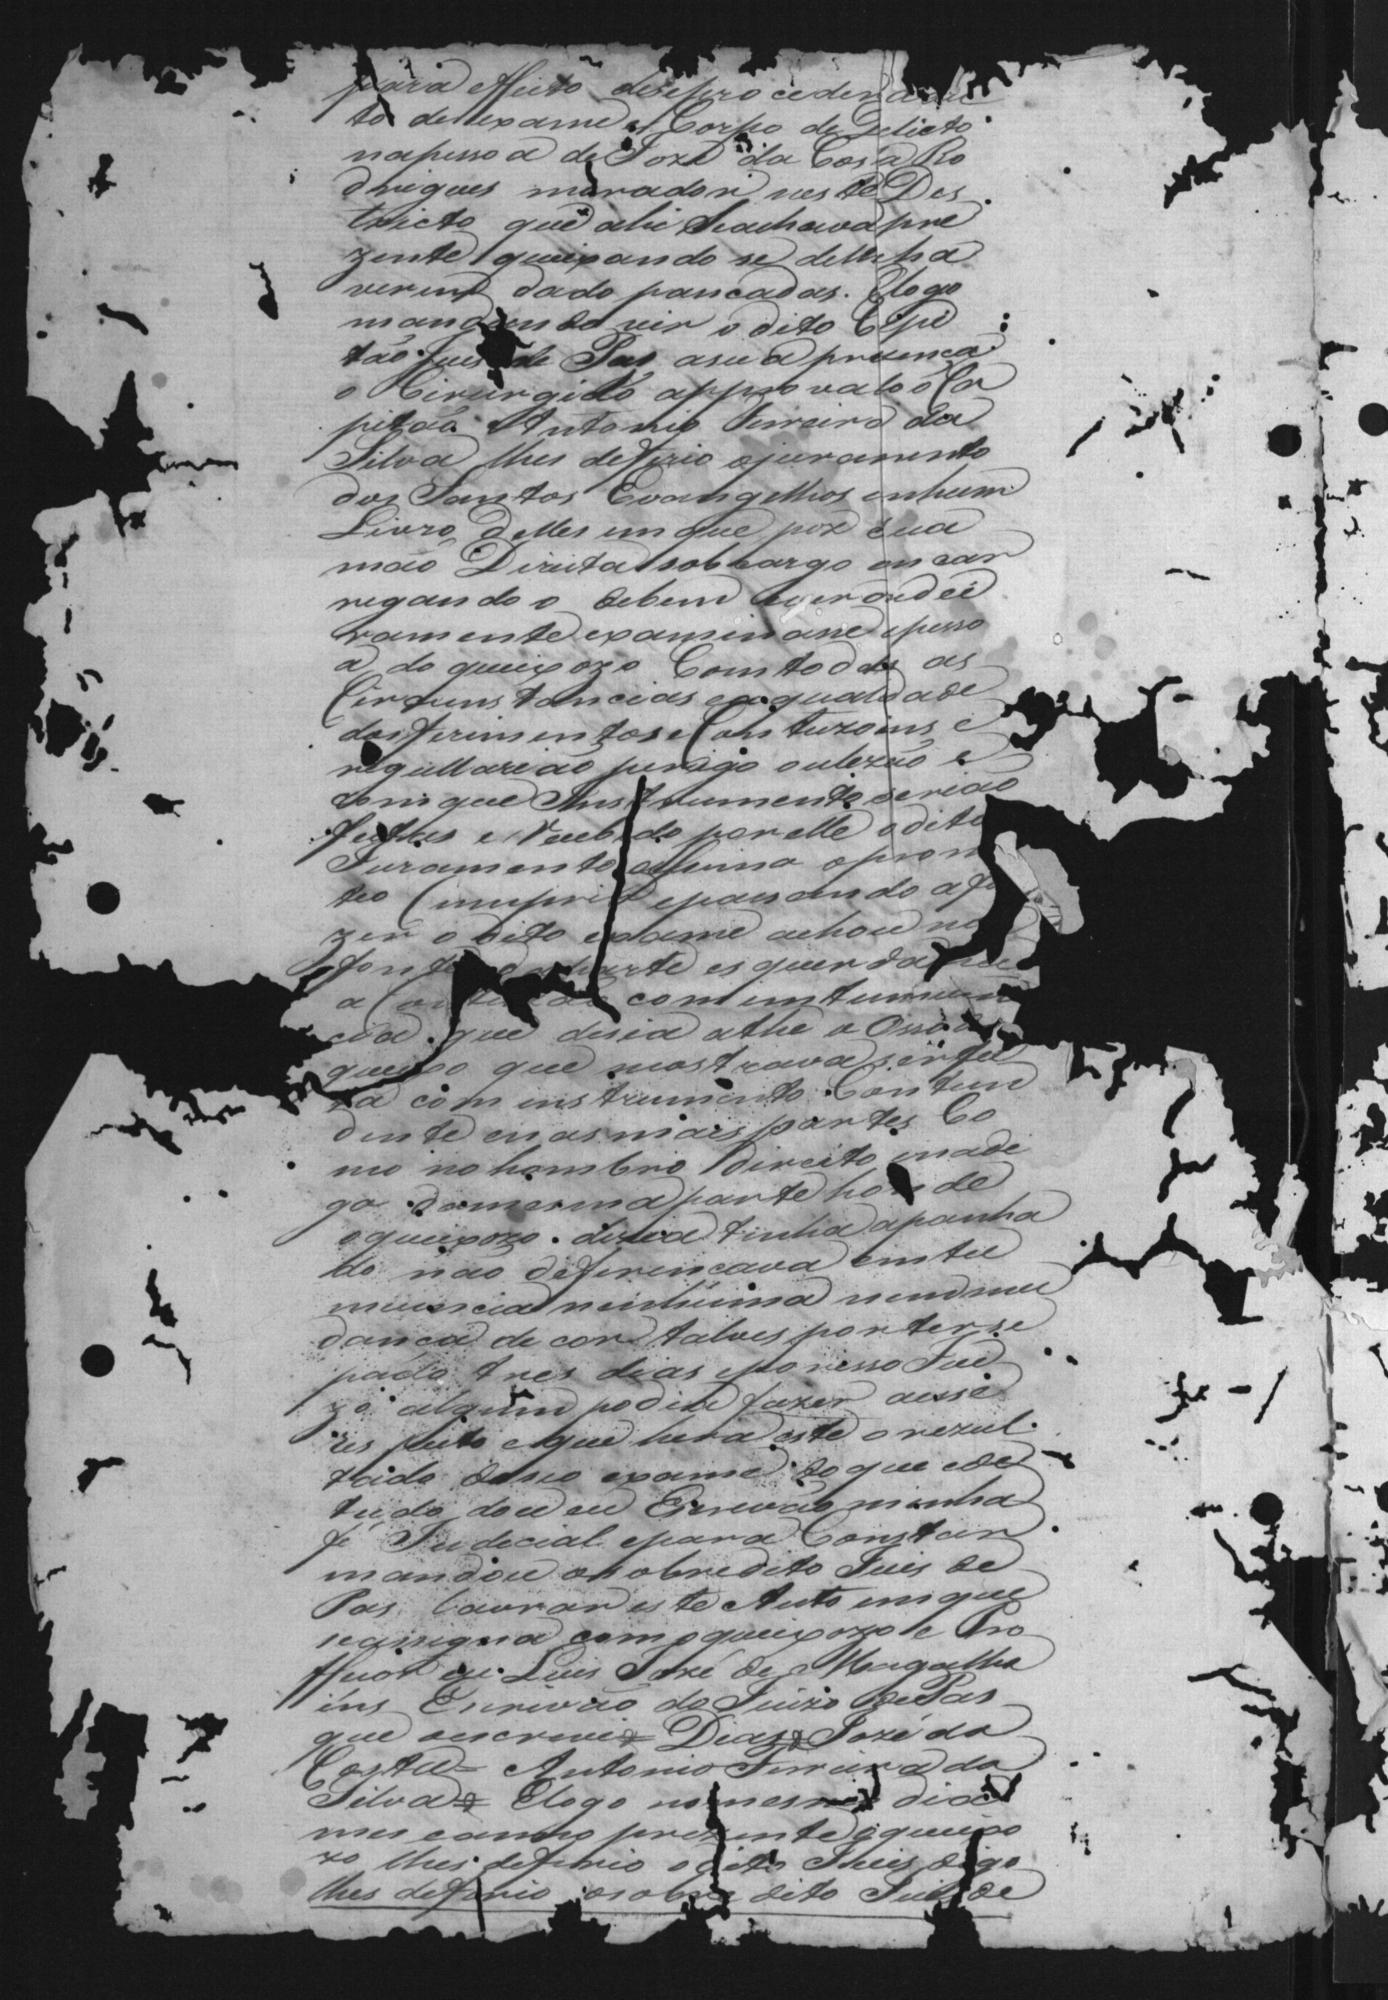 para effeito deseproceder auc
to de exame e Corpo de Delicto
napessoa de Jozé da Costa Ro
drigues morador neste Des
tricto que alli seachava pre
zente queixando se delhe ha
verem dado pancadas. Elogo
mandando vir o dito Capi
tão Juis de Pas asua presença
o Cirurgião approvado o Ca
pitão Antonio Ferreira da
Silva lhes deferio ojuramento
dos Santos Evangelhos enhum
Livro delles em que poz sua
mão Direita sobcargo encar
regando o debem everdadei
ramente examinasse apesso
a do queixozo Comtodas as
Circunstancias eaqualidade
dosferimentos e Contuzoins e
regullar ao perigo oulezão e
comque Instrumento serião
feitos e recebido porelle o dito
Juramento assima oprom
teo Cumprir epassando afa
zer o dito exame achou na
fonte da parte esquerda
a Contuzão com intumecen
cia que desia athe o Osso do
queixo que mostrava ser fei
ta com instrumento Contun
dente enasmais partes Co
mo no hombro direito enade
ga damesma parte honde
oqueixozo disia tinha apanha
do não deferençava emtu
mecencia nenhuma nem mu
dança de cor talves por terse
pado tres dias eporisso Jui
zo algum podia fazer aesse
respeito eque hera este o rezul
tado deseo exame do que ede
tudo dou eu Escrivão minha
fé Judecial epara Constar
mandou osobredito Juis de
Pas lavrar este Auto emque
seassigna com oqueixozo e Pro
ffeçor eu Luis Jozé de Magalha
ins Escrivão do Juizo de Pas
que oescrevi = Dias = Jozé da
Costa = Antonio Ferreira da
Silva = Elogo nomesmo dia
mes eanno prezente oqueixo
zo lhes deferio o dito Juis digo
lhes deferio osobre dito Juis de